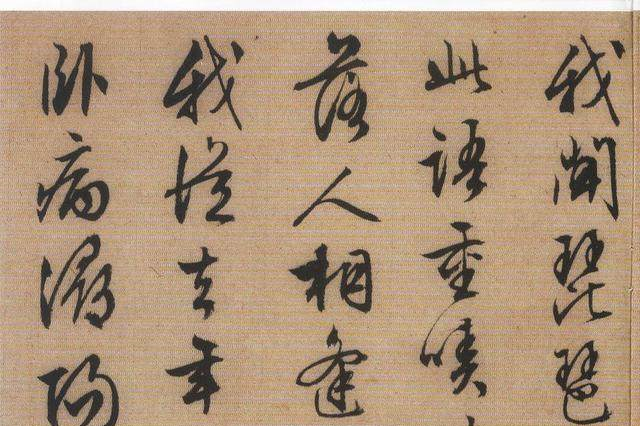 我闻琵琶
此語重唧
落人相逢
我從去年
卧病潯陽